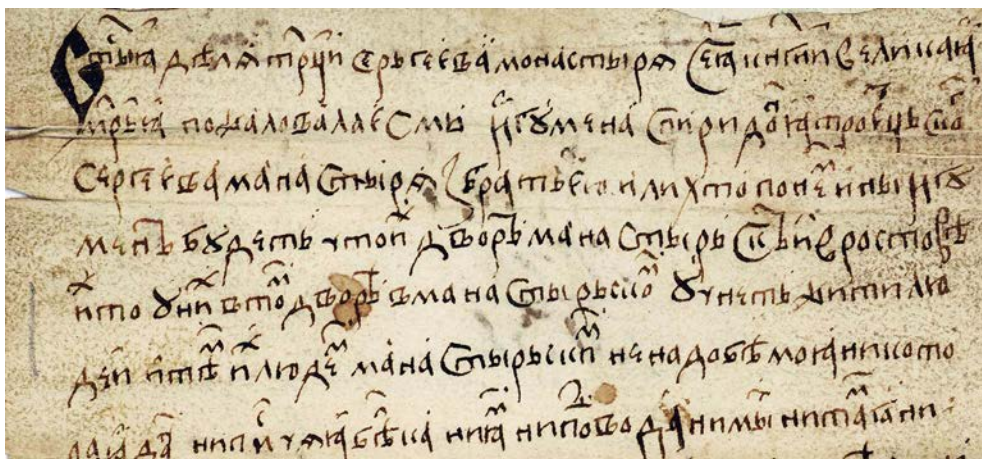 Стыꙗ дѣлѧ трци Серьгеева монастырѧ Се ꙗз кнгни великаꙗ
мрьꙗ пожаловала есмы игꙋмена Спиридоньꙗ троецьског
Сергеева манастырѧ з братьею или хто по нем иныи игꙋ
менъ бꙋдеть что их дворъ манастырьскъи в ростовѣ
и хто ꙋ них в том дворѣ в манастырьском ꙋчнеть жити лю
деи и тѣм их людем манастырьским не надобѣ моꙗ никото
раꙗ дан ни ни ни подвода ни мыт ни тамга ни